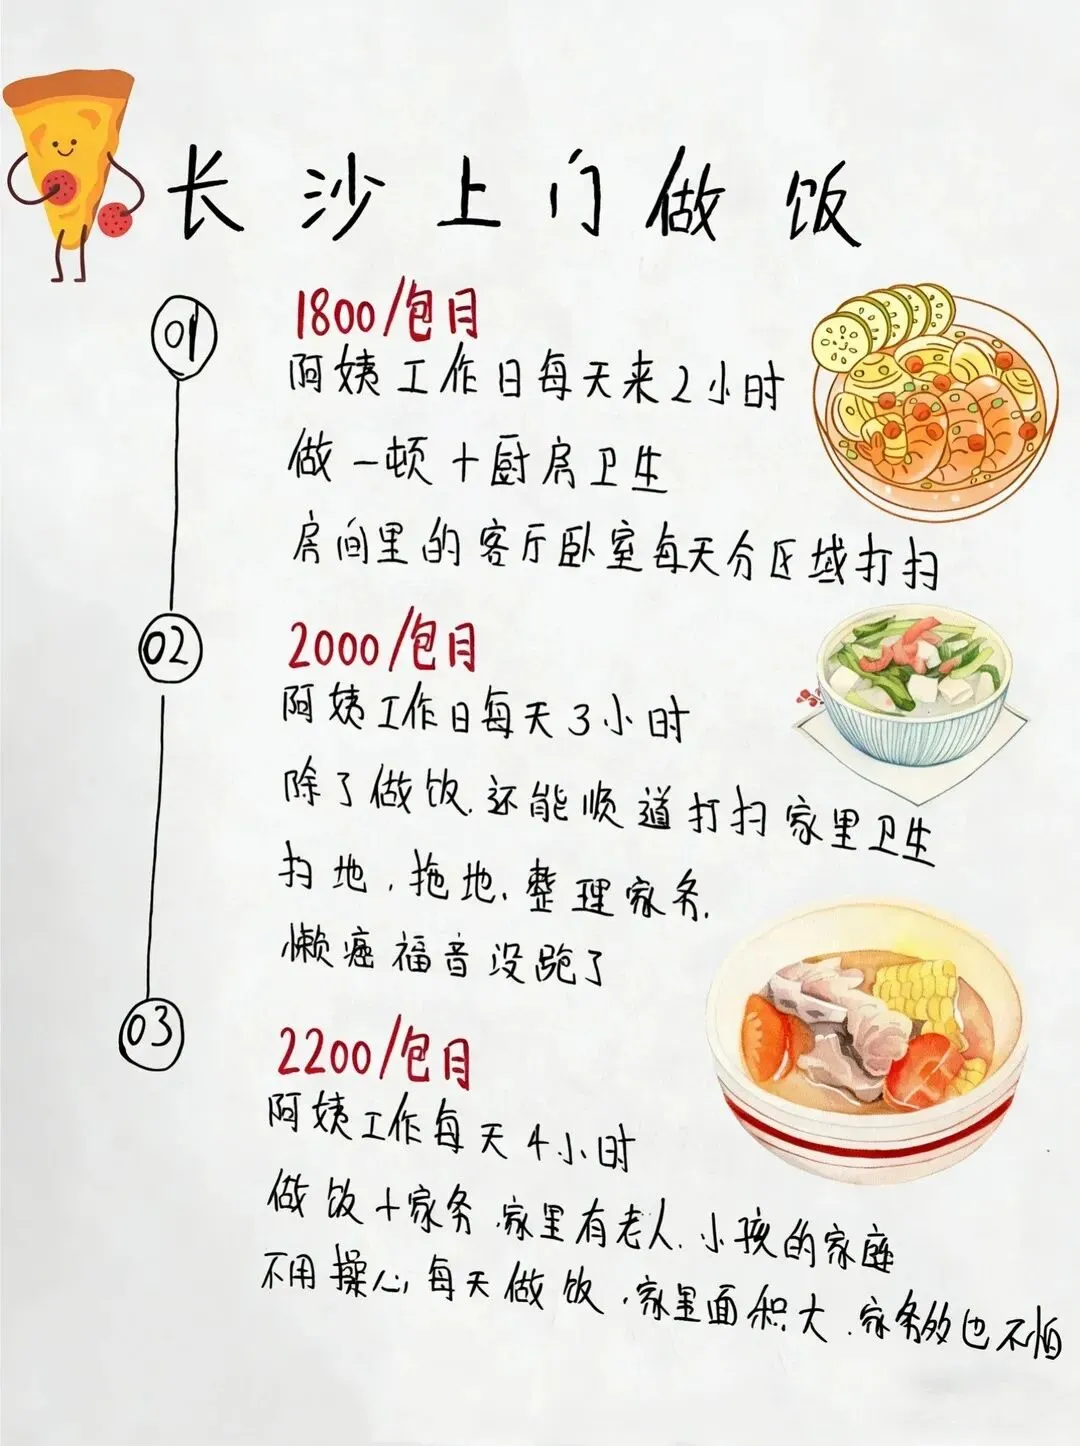 长沙上门做饭
01
1800/包月
阿姨工作日每天来2小时
做一顿+厨房卫生
房间里的客厅卧室每天分区域打扫
02
2000/包月
阿姨工作日每天3小时
除了做饭.还能顺道打扫家里卫生
扫地.拖地.整理家务.
懒癌福音没跑了
03
2200/包月
阿姨工作每天4小时
做饭+家务.家里有老人.小孩的家庭
不用操心每天做饭.家里面积大.家务多也不怕